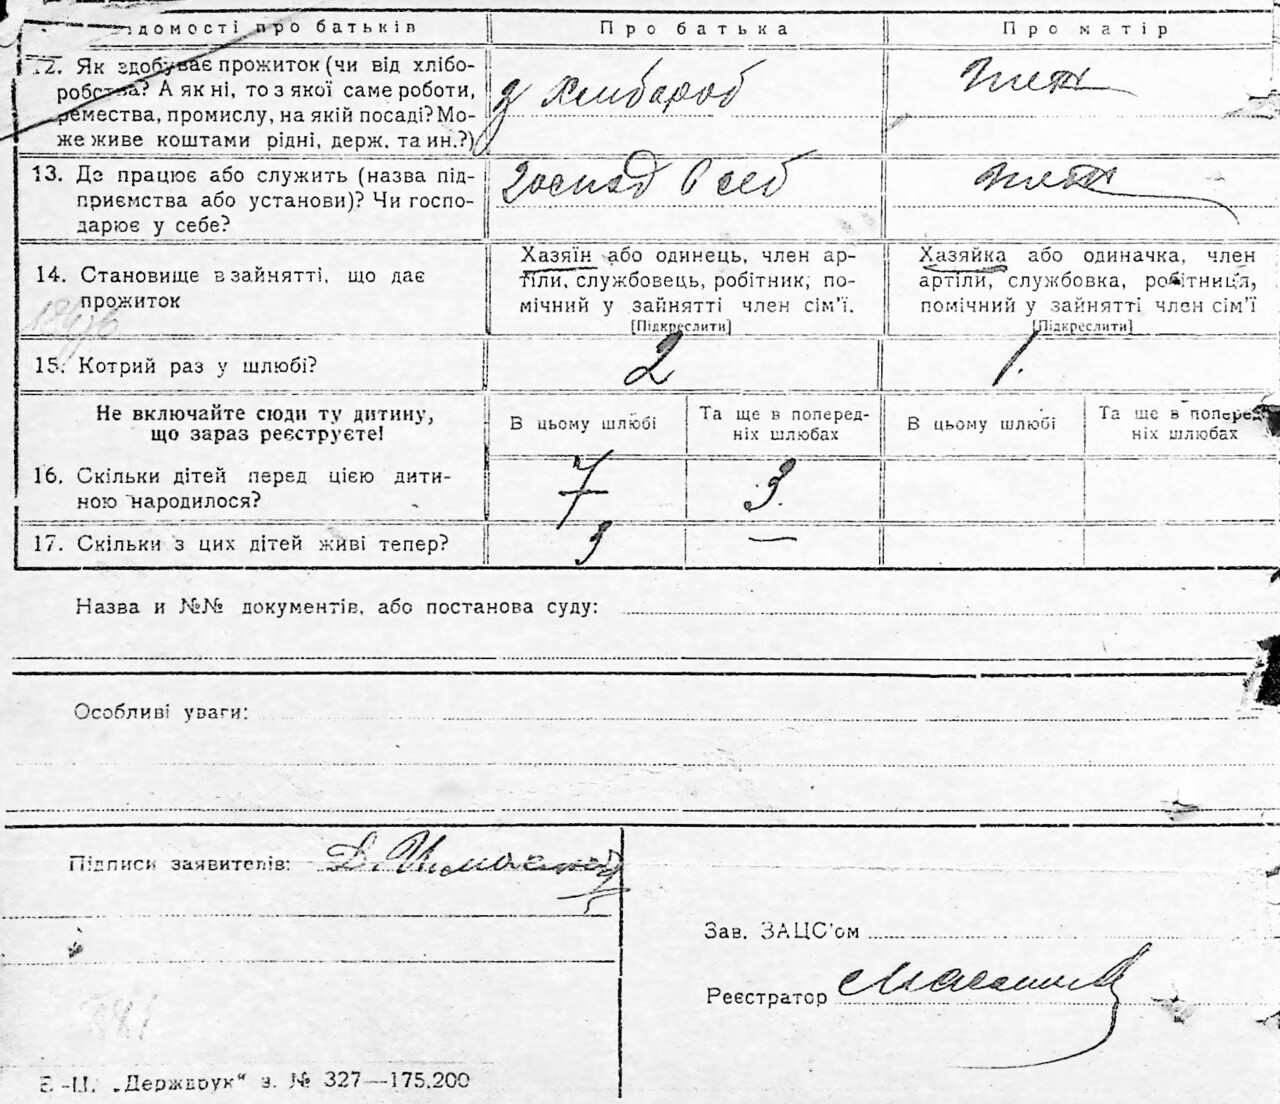 ідомості про батьків
Про батька
Про матір
12. Як здобуває прожиток (чи від хлібо-
робства? А як ні, то з якої саме роботи,
ремества, промислу, на якій посаді? Мо-
же живе коштами рідні, держ. та ин.?)
хлібароб
тет
13. Де працює або служить (назва під-
приємства або установи)? Чи госпо-
дарює у себе?
господ в себ
тет
14. Становище в зайнятті, що дає
прожиток
Хазяїн або одинець, член ар-
тіли, службовець, робітник, по-
мічний у зайнятті член сім’ї.
[Підкреслити]
Хазяйка або одиначка, член
артіли, службовка, робітниця,
помічний у зайнятті член сім’ї
[Підкреслити]
15. Котрий раз у шлюбі?
2
1.
Не включайте сюди ту дитину,
що зараз реєструєте!
В цьому шлюбі
Та ще в поперед-
ніх шлюбах
В цьому шлюбі
Та ще в поперед-
ніх шлюбах
16. Скільки дітей перед цією дити-
ною народилося?
7
3.
17. Скільки з цих дітей живі тепер?
3
—
Назва и №№ документів, або постанова суду:
Особливі уваги:
Підписи заявителів:
Зав. ЗАЦС’ом
Реєстратор
„Держдрук“ з. № 327—175.200